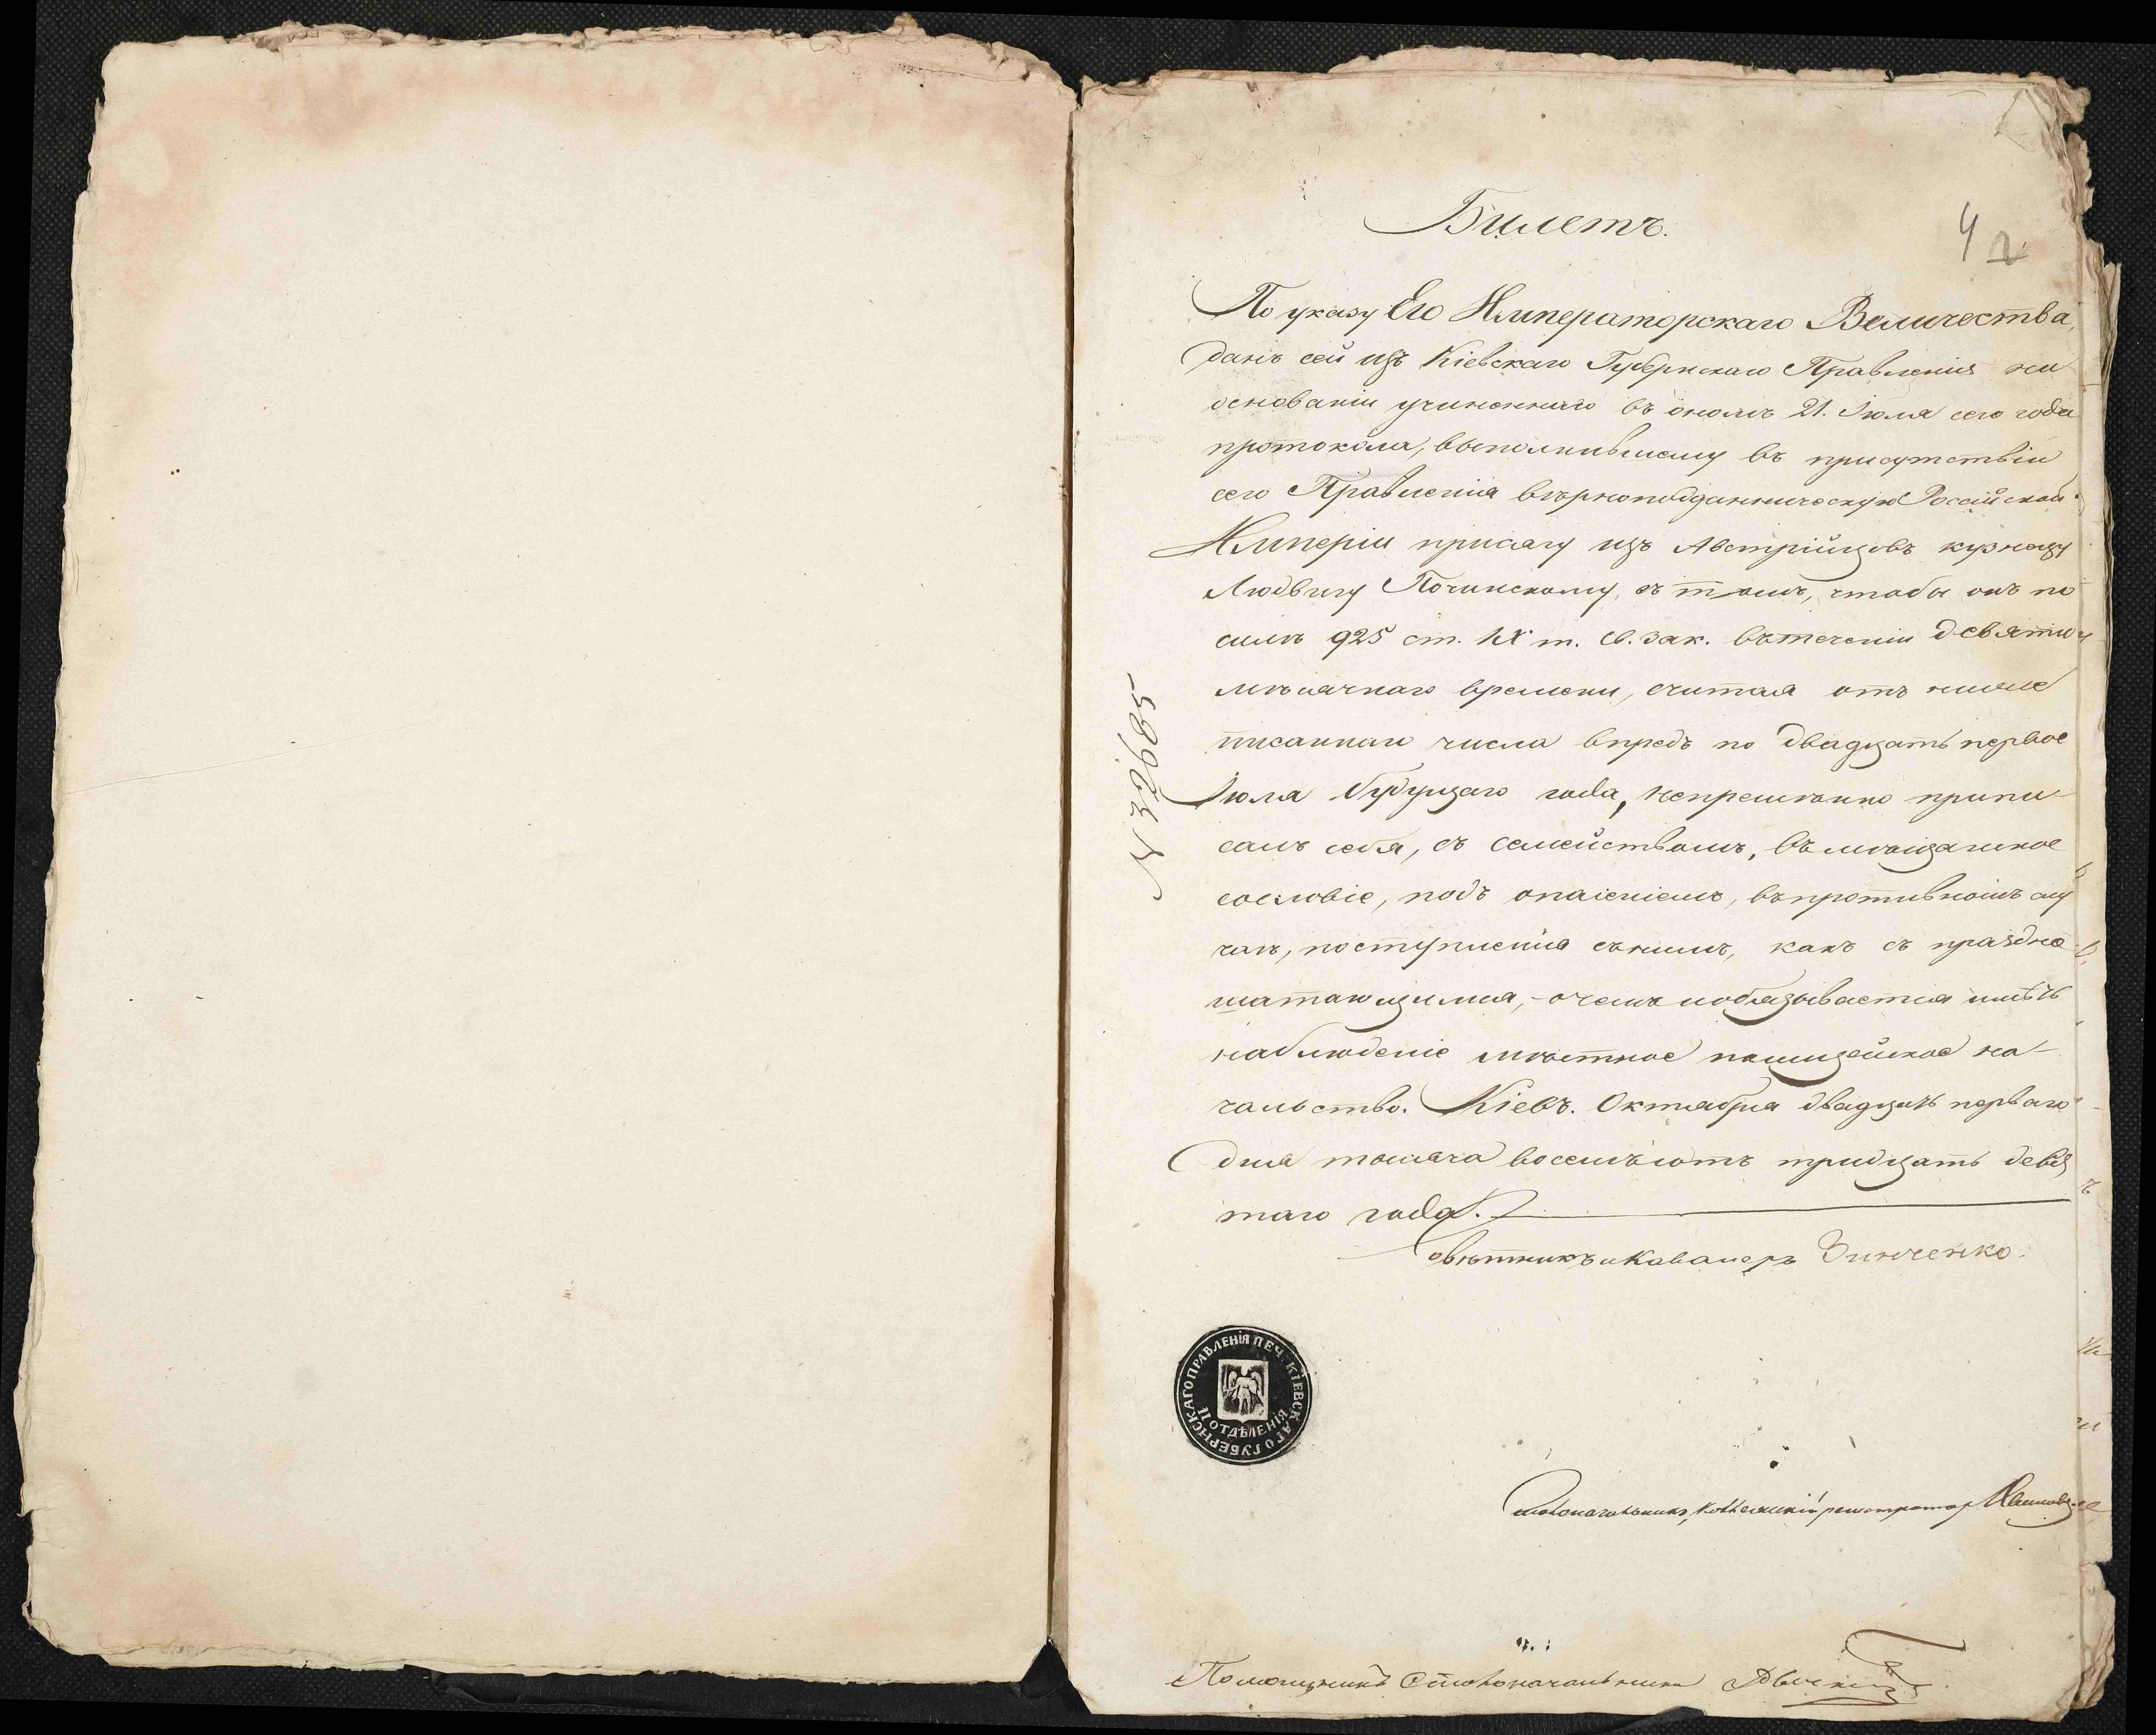 Билетъ.
4 2
По указу Его Императорскаго Величества,
данъ сей изъ Кіевскаго Губернскаго Правленія на
основаніи учиненнаго въ ономъ 21. Іюля сего года
протокола, выполнившему въ присутствіи
сего Правленія вѣрноподданническую Россійской
Имперіи присягу изъ Австрійцовъ кузнецу
Людвигу Починскому, съ тѣмъ, чтобы онъ по
силѣ 925 ст. IX т. Св. зак. въ теченіи девяти
мѣсячнаго времени, считая отъ ниже
писаннаго числа впредь по двадцать первое
Іюля будущаго года, непремѣнно припи
салъ себя, съ семействомъ, въ мѣщанское
сословіе, подъ опасеніемъ, въ противномъ слу
чаѣ, поступленія съ нимъ, какъ съ праздно
шатающимся, о чемъ и обязывается имѣть
наблюденіе мѣстное полицейское на-
чальство. Кіевъ. Октября двадцать перваго
дня тысяча восемьсотъ тридцать девя
таго года.
Совѣтникъ и Кавалеръ Зинченко.
N 32685
ПЕЧ. КІЕВСКАГО ГУБЕРНСКАГО ПРАВЛЕНІЯ
II ОТДѢЛЕНІЯ
Столоначальникъ, Коллежскій регистраторъ
Помощникъ Столоначальника